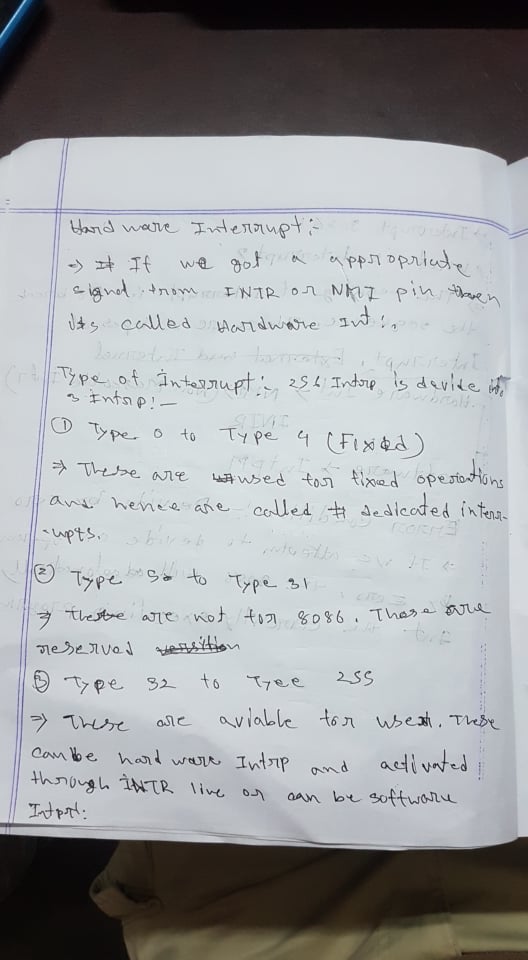 Hardware Interrupt:-
⇒ If we got a appropriate
signal from INTR or NMI pin then
its called Hardware Int:.
Type of Interrupt:- 256 Intrp is devide into
3 Intrp:-
① Type 0 to Type 4 (Fixed)
⇒ These are used for fixed operations
and hence are called dedicated interr-
-upts.
② Type 5 to Type 31
⇒ these are not for 8086. These are
reserved
③ Type 32 to Tyee 255
⇒ These are aviable for user. These
can be hardware Intrp and activated
through INTR live or can be software
Intprt: